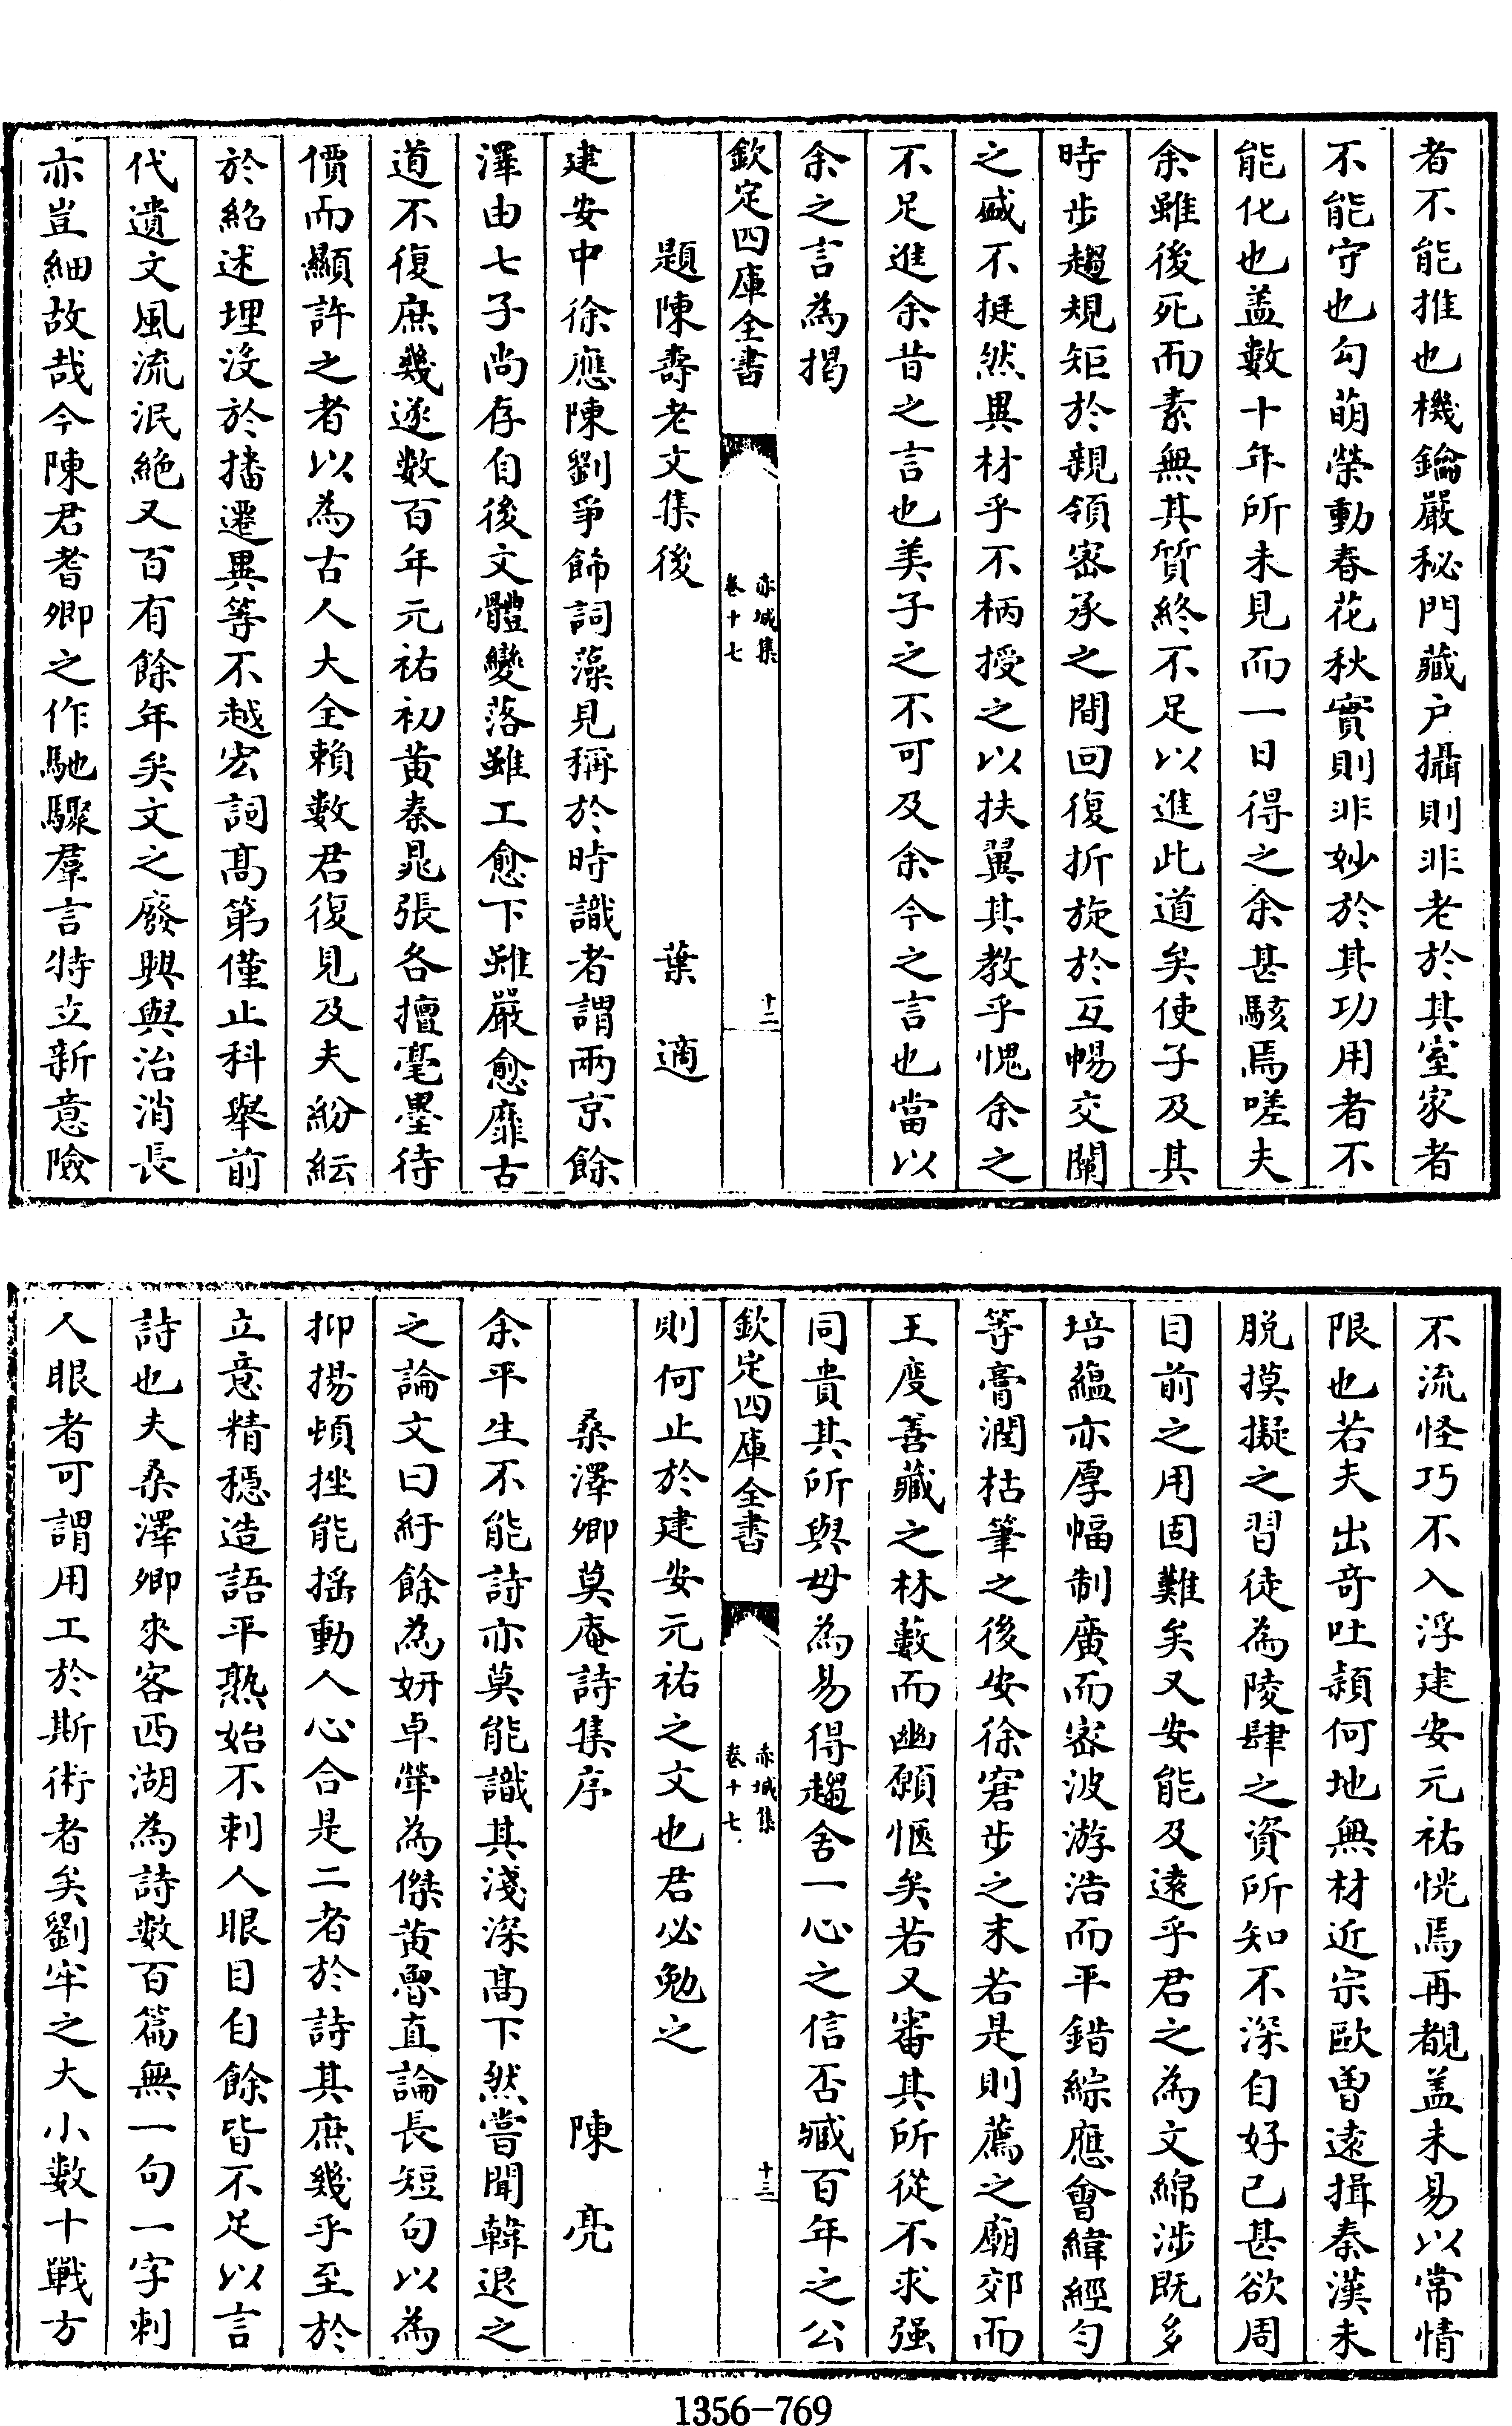 者不能推也機鑰嚴秘門藏户攝則非老於其室家者
不能守也勾萌榮動春花秋實則非妙於其功用者不
能化也盖數十年所未見而一日得之余甚駭焉嗟夫
余雖後死而素無其質終不足以進此道矣使子及其
時步趨規矩於親領密承之間回復折旋於互暢交關
之盛不挺然異材乎不柄授之以扶翼其教乎愧余之
不足進余昔之言也美子之不可及余今之言也當以
余之言為揭
欽定四庫全書
赤城集
卷十七
十二
題陳壽老文集後
葉適
建安中徐應陳劉爭飾詞藻見稱於時識者謂兩京餘
澤由七子尚存自後文體變落雖工愈下雖嚴愈靡古
道不復庶幾遂數百年元祐初黄秦晁張各擅毫墨待
價而顯許之者以為古人大全賴數君復見及夫紛紜
於紹述埋沒於播遷異等不越宏詞髙第僅止科舉前
代遺文風流泯絶又百有餘年矣文之廢興與治消長
亦豈細故哉今陳君耆卿之作馳驟羣言特立新意險
不流怪巧不入浮建安元祐恍焉再覩盖未易以常情
限也若夫出竒吐頴何地無材近宗歐曽遠揖秦漢未
脱摸擬之習徒為陵肆之資所知不深自好已甚欲周
目前之用固難矣又安能及遠乎君之為文綿涉既多
培藴亦厚幅制廣而密波游浩而平錯綜應會緯經匀
等膏潤枯筆之後安徐窘步之末若是則薦之廟郊而
王度善藏之林藪而幽願愜矣若又審其所從不求强
同貴其所與毋為易得趨舍一心之信否臧百年之公
欽定四庫全書
赤城集
卷十七
十三
則何止於建安元祐之文也君必勉之
桑澤卿莫庵詩集序
陳亮
余平生不能詩亦莫能識其淺深髙下然嘗聞韓退之
之論文曰紆餘為妍卓犖為傑黄魯直論長短句以為
抑揚頓挫能揺動人心合是二者於詩其庶幾乎至於
立意精穩造語平熟始不刺人眼目自餘皆不足以言
詩也夫桑澤卿來客西湖為詩數百篇無一句一字刺
人眼者可謂用工於斯術者矣劉牢之大小數十戰方
1356-769